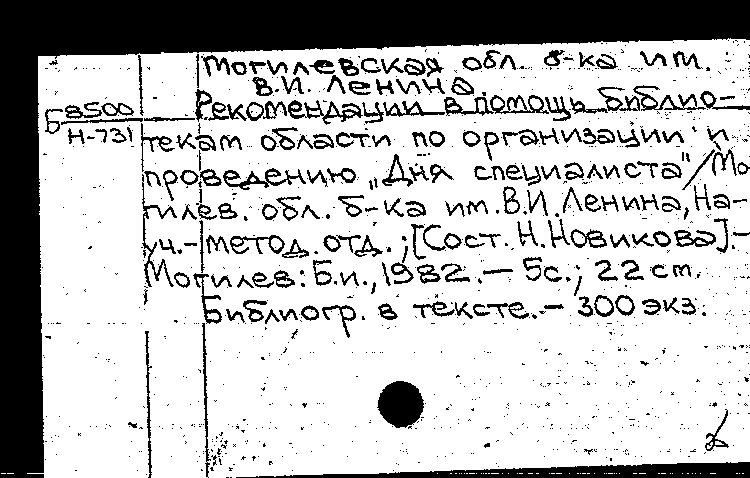 Могилевская обл. б-ка им.
В.И. Ленина.
Б8500
Н-731
Рекомендации в помощь библио-
текам области по организации и
проведению „Дня специалиста"/Мо
гилев. обл. б-ка им. В.И. Ленина, На-
уч.-метод. отд.; [Сост. Н. Новикова].-
Могилев: Б.и., 1982. — 5с.; 22 cm.
Библиогр. в тексте. — 300 экз.